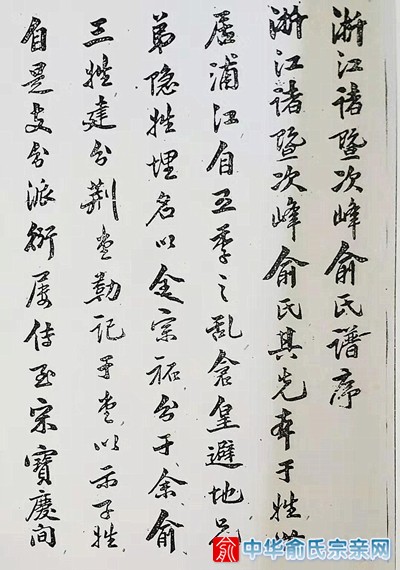 浙江诸暨次峰俞氏谱序
浙江诸暨次峰俞氏其先本于姓
居浦江自五季之乱仓皇避地兄
弟隐姓埋名以全宗祏分于余俞
三姓建分荆堂勒记于堂以示子姓
自是支分派衍屡传至宋寶慶间
俞 中华俞氏宗亲网